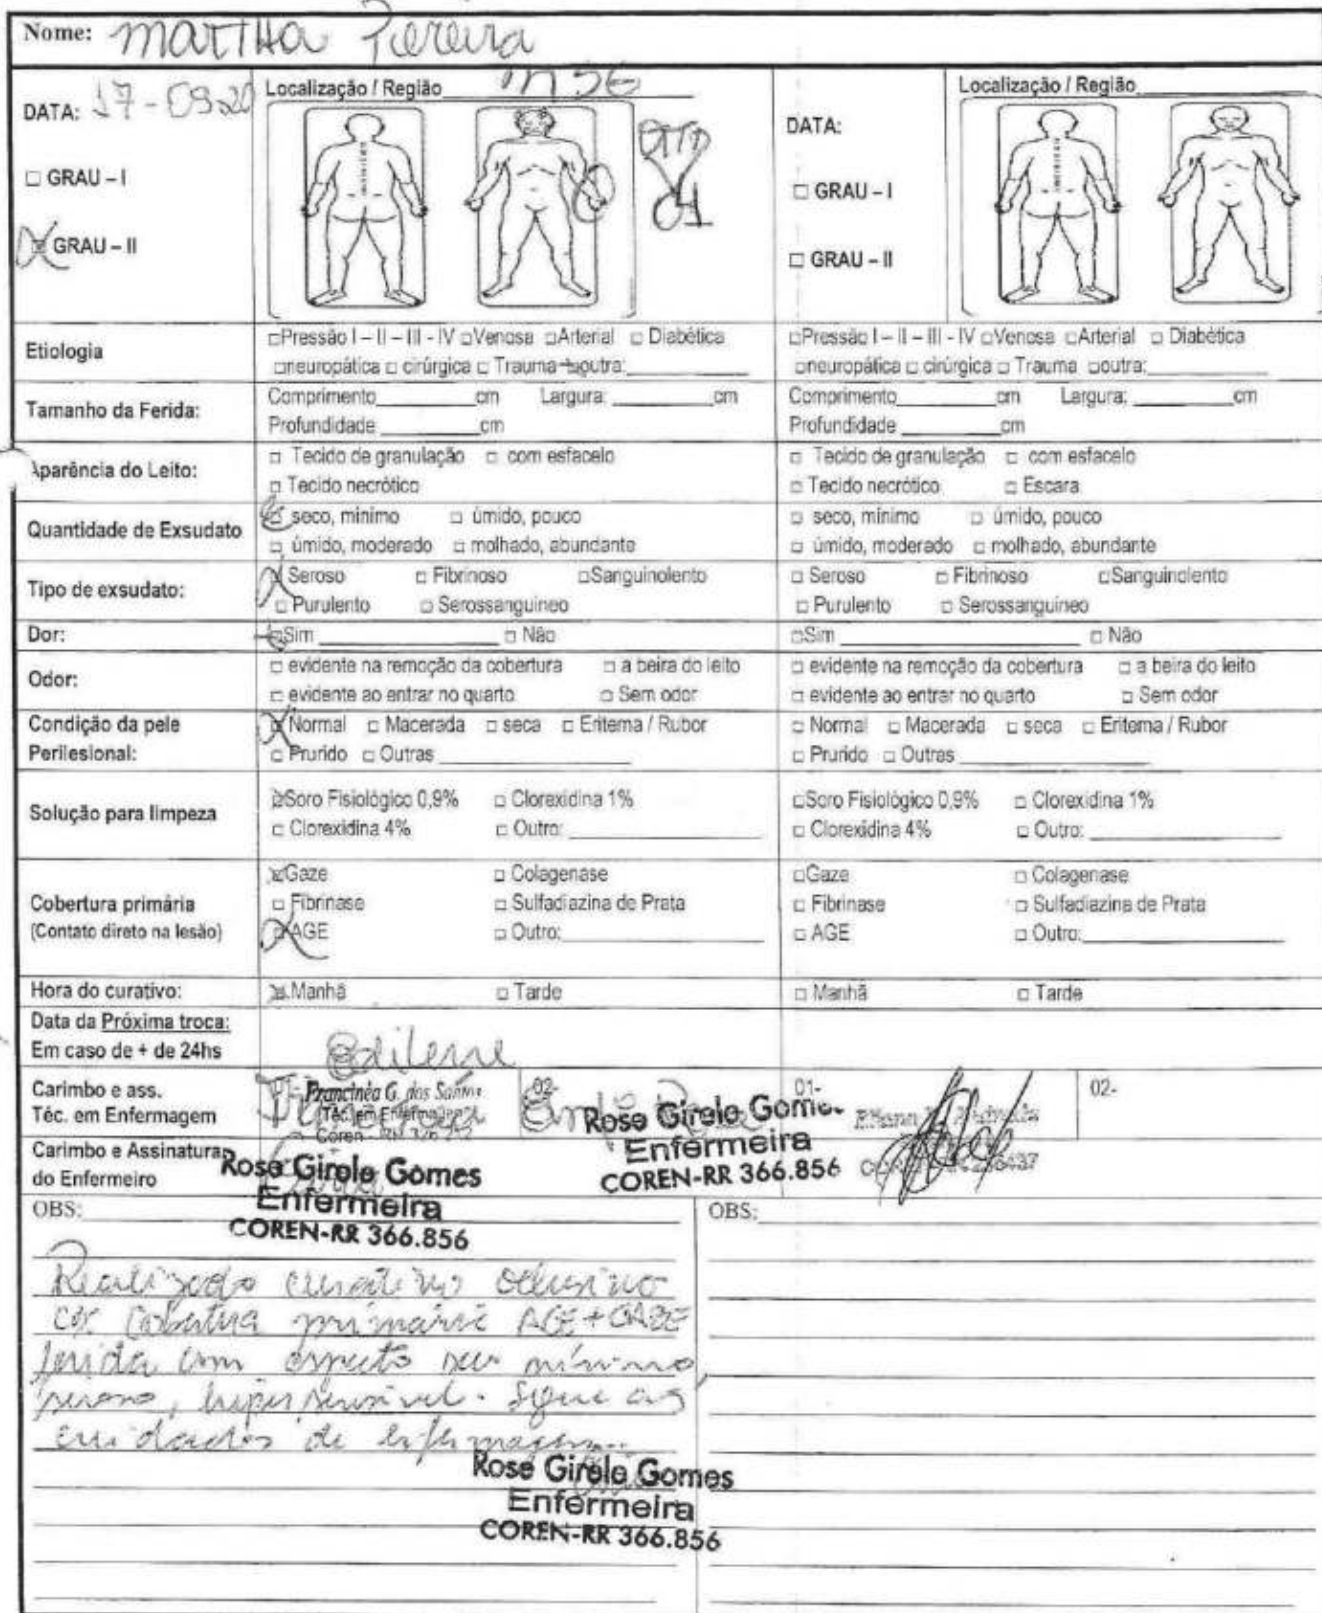 Nome: Martha Pereira
DATA: 17-09-20
Localização / Região MSE
DATA:
Localização / Região
□ GRAU – I
□ GRAU – I
□ GRAU – II
□ GRAU – II
01
Etiologia
□Pressão I – II – III - IV □Venosa □Arterial □ Diabética
□neuropática □ cirúrgica □ Trauma □outra:
□Pressão I – II – III - IV □Venosa □Arterial □ Diabética
□neuropática □ cirúrgica □ Trauma □outra:
Tamanho da Ferida:
Comprimento cm Largura: cm
Profundidade cm
Comprimento cm Largura: cm
Profundidade cm
Aparência do Leito:
□ Tecido de granulação □ com esfacelo
□ Tecido necrótico
□ Tecido de granulação □ com esfacelo
□ Tecido necrótico □ Escara
Quantidade de Exsudato
□ seco, mínimo □ úmido, pouco
□ úmido, moderado □ molhado, abundante
□ seco, mínimo □ úmido, pouco
□ úmido, moderado □ molhado, abundante
Tipo de exsudato:
□ Seroso □ Fibrinoso □Sanguinolento
□ Purulento □ Serossanguineo
□ Seroso □ Fibrinoso □Sanguinolento
□ Purulento □ Serossanguineo
Dor:
□Sim □ Não
□Sim □ Não
Odor:
□ evidente na remoção da cobertura □ a beira do leito
□ evidente ao entrar no quarto □ Sem odor
□ evidente na remoção da cobertura □ a beira do leito
□ evidente ao entrar no quarto □ Sem odor
Condição da pele
Perilesional:
□ Normal □ Macerada □ seca □ Eritema / Rubor
□ Prurido □ Outras
□ Normal □ Macerada □ seca □ Eritema / Rubor
□ Prurido □ Outras
Solução para limpeza
□Soro Fisiológico 0,9% □ Clorexidina 1%
□ Clorexidina 4% □ Outro:
□Soro Fisiológico 0,9% □ Clorexidina 1%
□ Clorexidina 4% □ Outro:
Cobertura primária
(Contato direto na lesão)
□Gaze □ Colagenase
□ Fibrinase □ Sulfadiazina de Prata
□ AGE □ Outro:
□Gaze □ Colagenase
□ Fibrinase □ Sulfadiazina de Prata
□ AGE □ Outro:
Hora do curativo:
□ Manhã □ Tarde
□ Manhã □ Tarde
Data da Próxima troca:
Em caso de + de 24hs
Edilene
Carimbo e ass.
Téc. em Enfermagem
Francinéa G. dos Santos
Téc. em Enfermagem
02-
01-
02-
Rose Girele Gomes
Enfermeira
COREN-RR 366.856
Carimbo e Assinatura
do Enfermeiro
Rose Girele Gomes
Enfermeira
COREN-RR 366.856
OBS:
OBS:
Realizado curativo oclusivo
cobertura primária AGE + GAZE
ferida com aspecto seco mínimo
seroso, hipersensível. Segue aos
cuidados de enfermagem.
Rose Girele Gomes
Enfermeira
COREN-RR 366.856